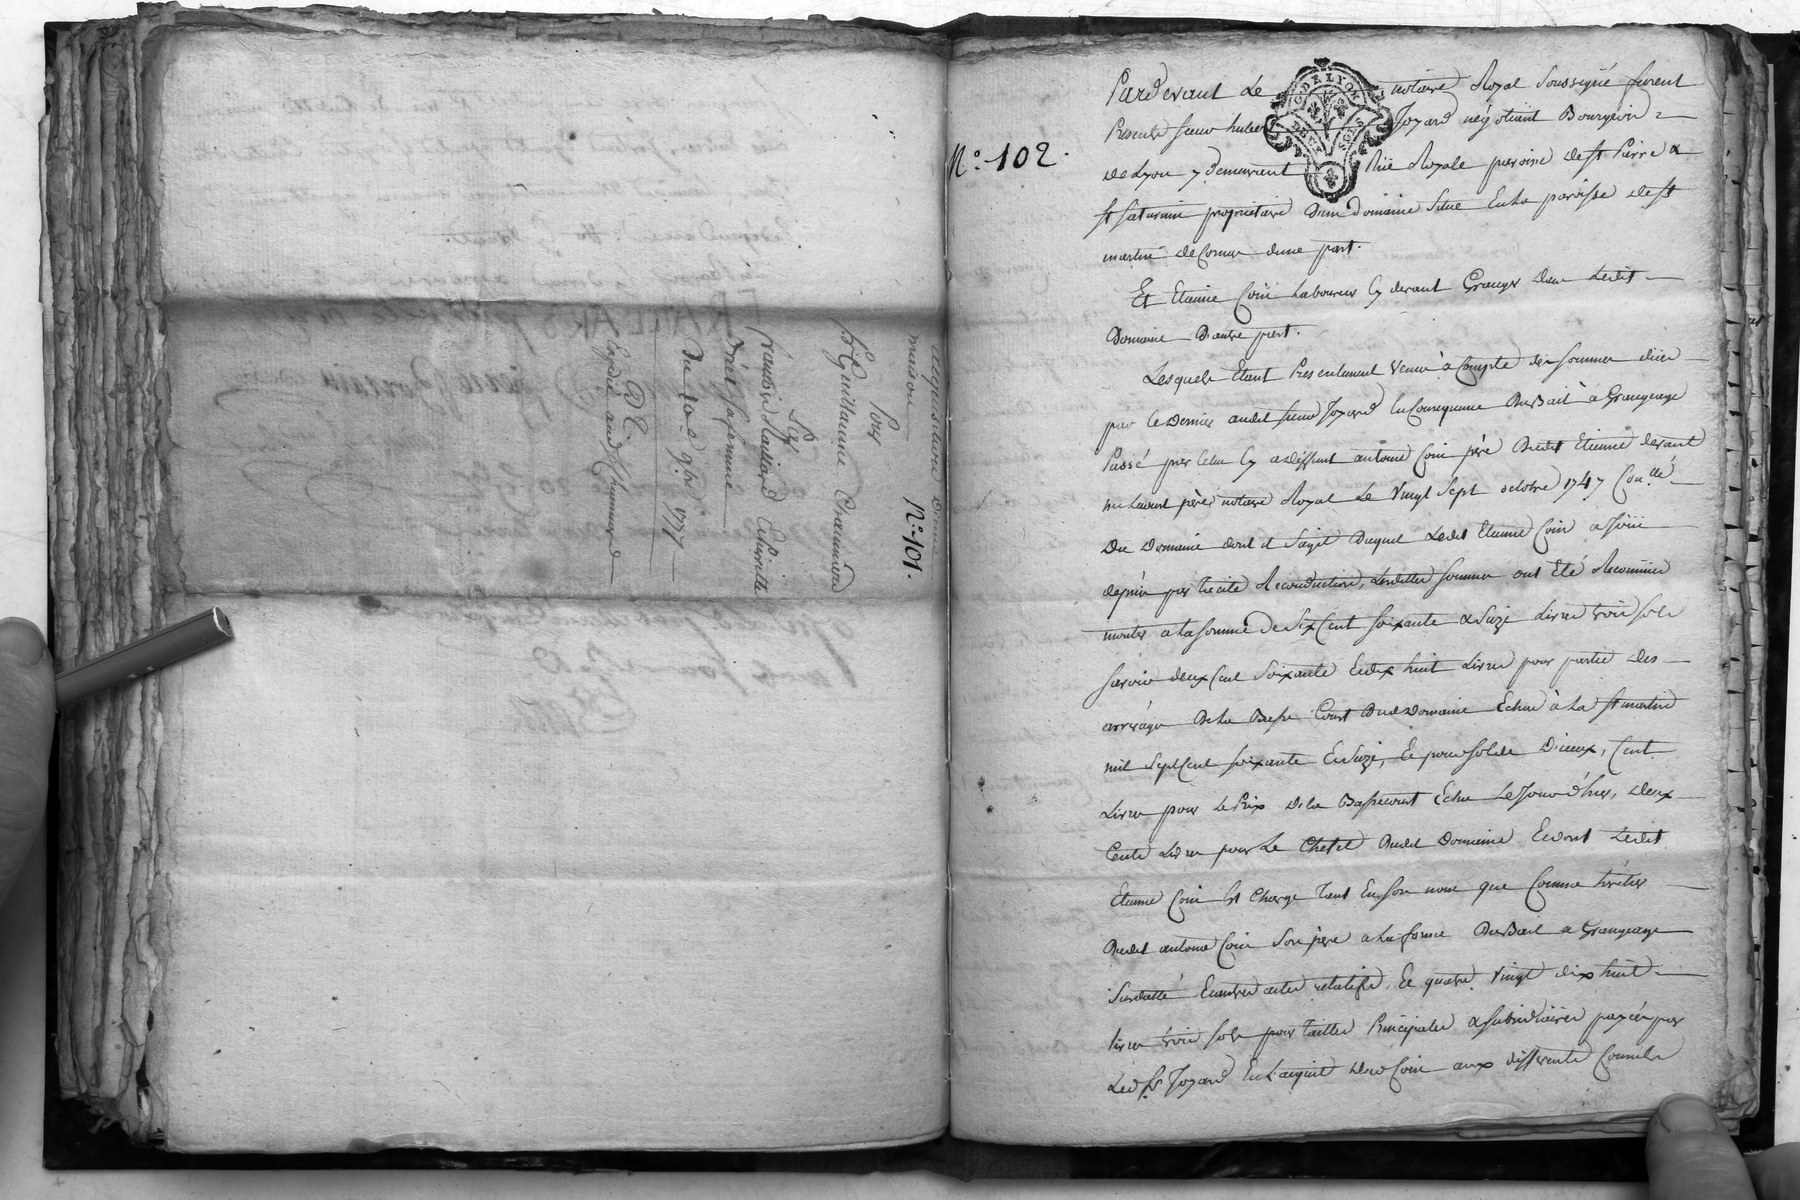 acquisition d'une
maison
N.º 101.
Pour
Sr Guillaume
Les
mariés
sa femme
Du 10e 9bre 1777
N.º 102.
G. DE LYON
DEUX SOLS
Pardevant Le notaire Royal Soussigné furent
Présents sieur Joyard négotiant Bourgeois
de Lyon y demeurant Rüe Royale paroisse de st Pierre &
st saturnin proprietaire d'un domaine situé En la paroisse de st
martin de Cornas d'une part.
Et Etienne Coin Laboureur cy devant Granger dans Ledit
Domaine D'autre part.
Lesquels Etant Presentement venus à Compte des sommes dües
par le Dernier audit sieur Joyard En Consequence Du Bail à Grangeage
Passé par Celui cy a deffunt antoine Coin père Dudit Etienne devant
me père notaire Royal Le Vingt sept octobre 1747
Du Domaine dont il s'agit Duquel Ledit Etienne Coin a joüi
depuis par tacite Reconduction, Lesdittes sommes ont Eté Reconnües
monter a la somme de six Cent soixante & seize Livres trois sols
savoir deux Cent soixante Et dix huit Livres pour partie des
arrerages De la Basse Court Dud. Domaine Echus à La st martin
mil sept Cent soixante Et seize, Et pour solde D'iceux, Cent
Livres pour Le Prix De la Bassecourt Echu Le jour d'hier, deux
Cents Livres pour Le Chetel Dudit Domaine Et dont Ledit
Etienne Coin s'est Chargé tant En son nom que Comme héritier
Dudit antoine Coin son père a la forme Du Bail a Grangeage
susdatté Et autres actes relatifs, Et quatre Vingt dix huit
Livres trois sols pour tailles Principales & subsidiaires payées par
Led. Sr Joyard En l'acquit Dud Coin aux differents Consuls